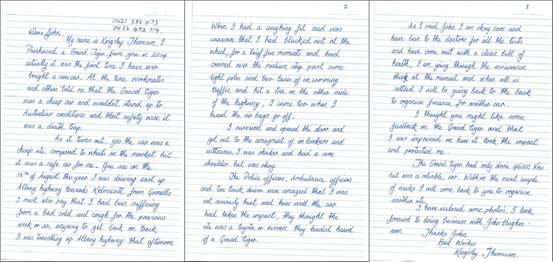 0421 384 073
0433 472 714
Dear John,
My name is Kingsley Thomson, I
Purchased a Grand Tiger from you in 2014
actually it was the first time I have ever
bought a new car. At the time workmates
and others told me that the Grand tiger
was a cheap car and wouldnt stand up to
Australian conditions and that safety wise it
was a death trap.
As it turns out, yes the car was a
cheap ute, compared to whats on the market but
it was a safe car for me. You see on the
15th of August this year I was driving east up
Albany highway towards Kelmscott from Gosnells
I must also say that I had been suffering
from a bad cold and cough for the previous
week or so, anyway to get back on track
I was travelling up Albany highway that afternoon
2
When I had a coughing fit and was
unaware that I had blacked out at the
wheel, for a brief few moments and had
crossed over the median strip past some
light poles and two lanes of on comming
traffic and hit a tree on the other side
of the highway, I came too when I
heard the air bags go off.
I survived and opened the door and
got out to the amazement of on lookers and
witnesses. I was shaken and had a sore
shoulder but was okay.
The Police officers, Ambulance officers
and tow truck drivers were amazed that I was
not seriously hurt and how well the car
had taken the impact, they thought the
ute was a toyota or nissan they hadnt heard
of a Grand tiger.
3
As I said John, I am okay now and
have been to the doctors for all the tests
and have come out with a clear bill of
health, I am going through the insurance
at the moment and when all is
settled I will be going back to the bank
to organise finance for another car.
I thought you might like some
feedback on the Grand tiger and that
I was impressed on how it took the impact
and protected me.
The Grand tiger had only done 46000 kms
but was a reliable car. Within the next couple
of weeks I will come back to you to organise
another ute.
I have enclosed some photos, I look
forward to doing business with John Hughes
soon. Thanks John
Best Wishes
Kingsley Thomson.